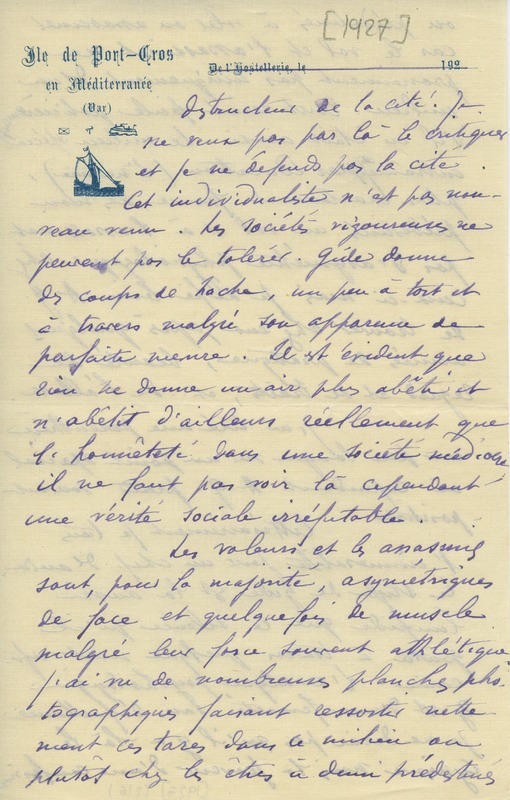 [1927]
Ile de Port-Cros
en Méditerranée
(Var)
De l'Hostellerie, le 192
destructeur de la cité. Je
ne veux pas par là le critiquer
et je ne défends pas la cité.
Cet individualiste n'est pas nou-
veau venu. Les sociétés vigoureuses ne
peuvent pas le tolérer. Gide donne
des coups de hache, un peu à tort et
à travers malgré son apparence de
parfaite mesure. Il est évident que
rien ne donne un air plus abêti et
n'abêtit d'ailleurs réellement que
l'honnêteté dans une société médiocre
il ne faut pas voir là cependant
une vérité sociale irréfutable.
Les voleurs et les assassins
sont, pour la majorité, asymétriques
de face et quelquefois de muscle
malgré leur force souvent athlétique
j'ai vu de nombreuses planches pho-
tographiques faisant ressortir nette-
ment ces tares dans ce milieu ou
plutôt chez les êtres à demi prédestinés